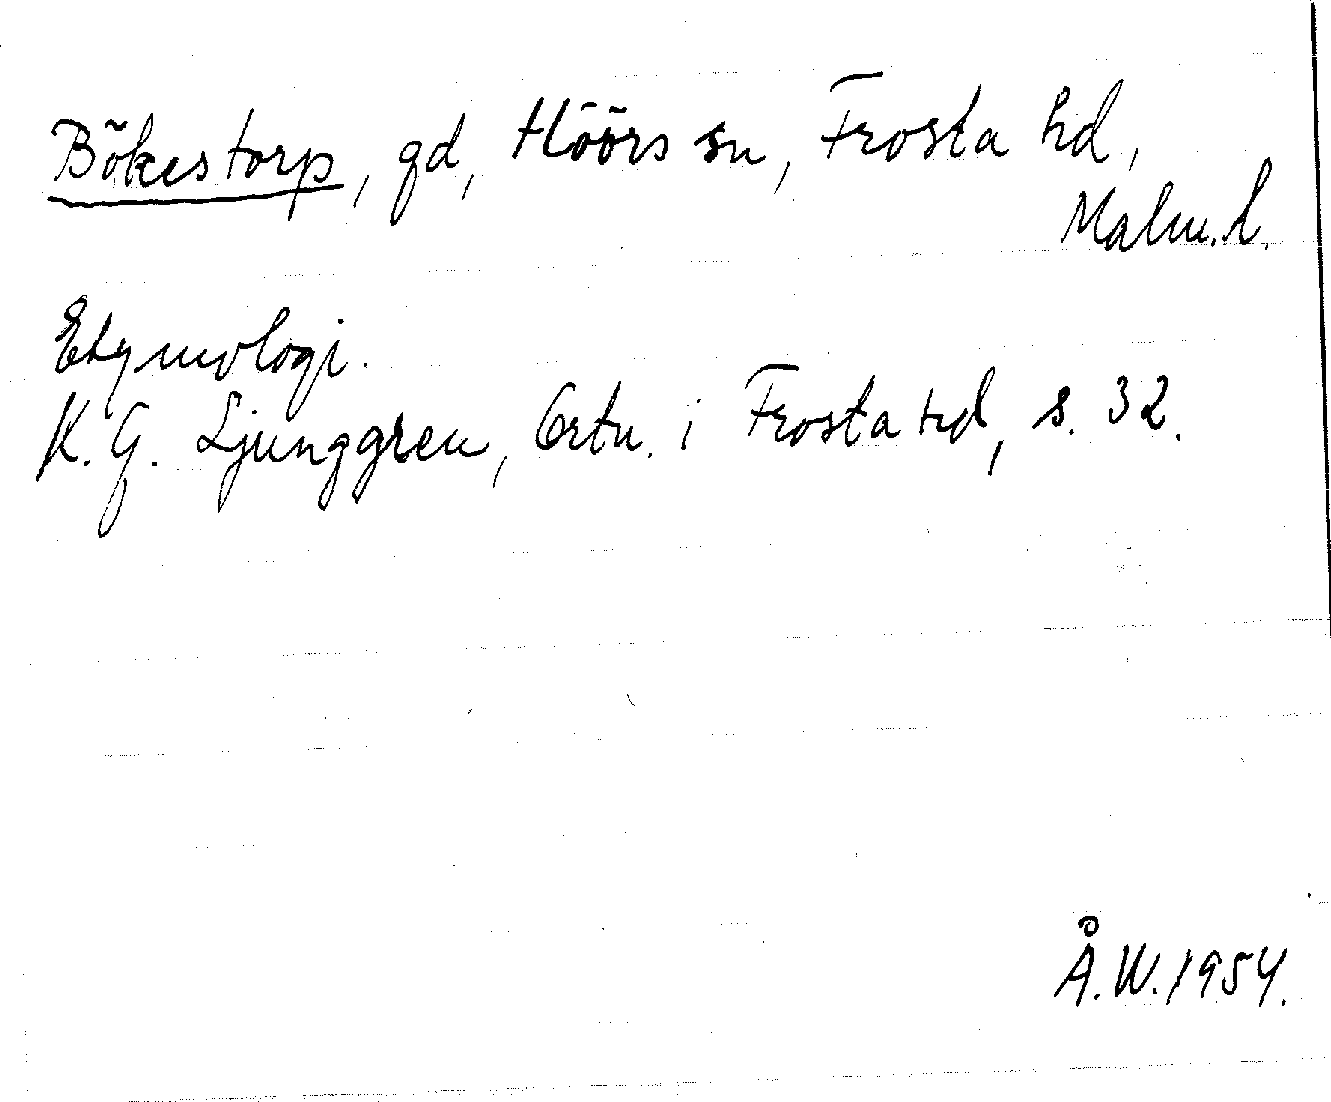 Bökestorp, gd, Höörs sn, Frosta hd,
Malm. l.
Etymologi.
K. G. Ljunggren, Ortn. i Frosta hd, s. 32.
Å. W. 1954.